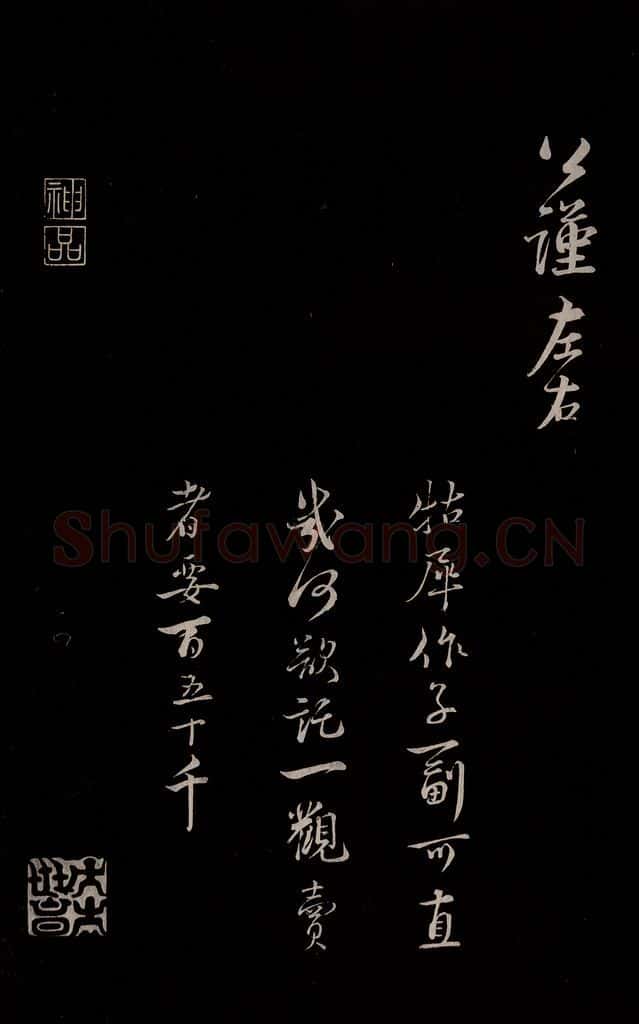 公謹左右
牯犀作子一副可直
幾何欲託一觀賣
者要百五十千
神品
Shufawang.CN